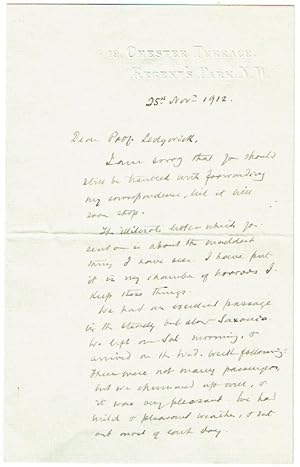 18, CHESTER TERRACE,
REGENT'S PARK. N.W.
25th Novr 1912.
Dear Prof. Sedgwick,
I am sorry that you should
still be troubled with forwarding
my correspondence, but it will
soon stop.
The illiterate letter which you
sent on is about the maddest
thing I have seen. I have put
it in my chamber of horrors I
keep these things.
We had an excellent passage
in the steady but slow Saxonia
We left on Sat morning, &
arrived on the Wed. week following.
There were not many passengers,
but we chummed up well, &
it was very pleasant. We had
mild & pleasant weather, & sat
out most of each day